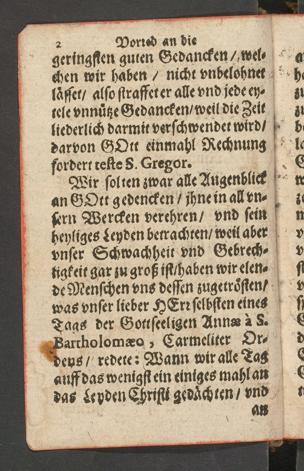 2 Vorred an die
geringsten guten Gedancken/ wel-
chen wir haben / nicht vnbelohnet
lässet/ also straffet er alle vnd jede ey-
tele vnnütze Gedancken/ weil die Zeit
liederlich darmit verschwendet wird/
darvon GOtt einmahl Rechnung
fordert teste S. Gregor.
Wir solten zwar alle Augenblick
an GOtt gedencken / jhne in all vn-
sern Wercken verehren/ vnd sein
heyliges Leyden betrachten/ weil aber
vnser Schwachheit vnd Gebrech-
ligkeit gar zu groß ist/ haben wir elen-
de Menschen vns dessen zugetrösten/
was vnser lieber HErr selbsten eines
Tags der Gottseeligen Annæ à S.
Bartholomæo, Carmeliter Or-
deys/ redete: Wann wir alle Tag
auff das wenigst ein einiges mahl an
das Leyden Christi gedächten/ vnd
an